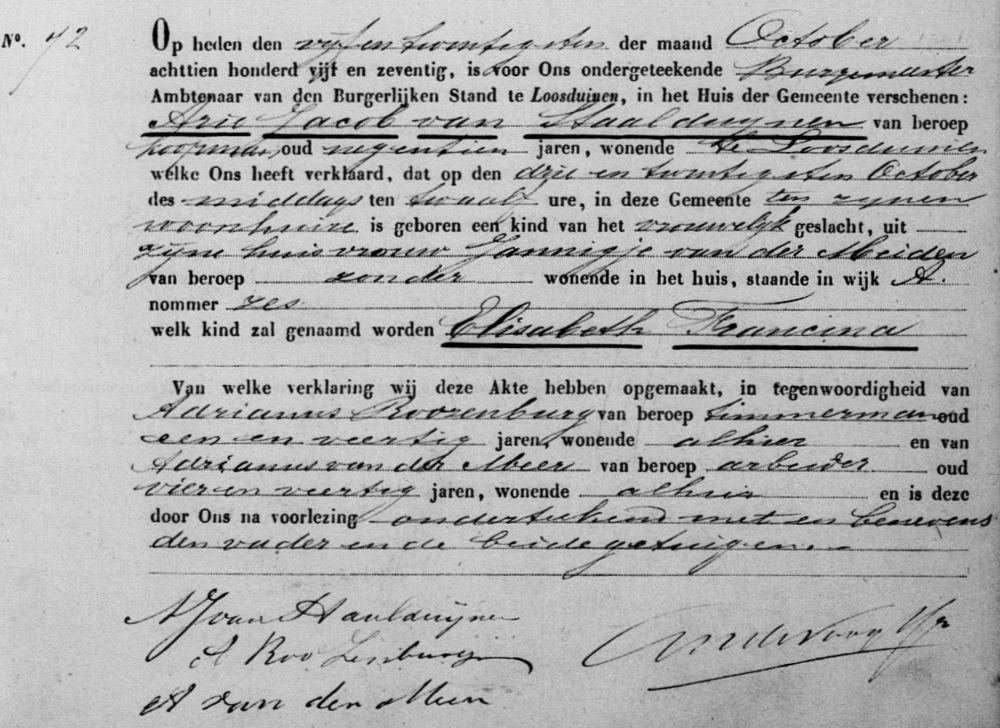 Nº. 72
Op heden den vijfentwintigsten der maand October
achttien honderd vijf en zeventig, is voor Ons ondergeteekende Burgemeester
Ambtenaar van den Burgerlijken Stand te Loosduinen, in het Huis der Gemeente verschenen:
Arie Jacob van Staalduynen van beroep
koopman, oud negentien jaren, wonende te Loosduinen
welke Ons heeft verklaard, dat op den drie en twintigsten October
des middags ten twaalf ure, in deze Gemeente ten zynen
woonhuize is geboren een kind van het vrouwelyk geslacht, uit
zyne huisvrouw Jannigje van der Meiden
van beroep zonder wonende in het huis, staande in wijk A.
nommer zes
welk kind zal genaamd worden Elisabeth Francina
Van welke verklaring wij deze Akte hebben opgemaakt, in tegenwoordigheid van
Adrianus Roozenburg van beroep timmerman oud
een en veertig jaren, wonende alhier en van
Adrianus van der Meer van beroep arbeider oud
vier en veertig jaren, wonende alhier en is deze
door Ons na voorlezing onderteekend met en benevens
den vader en de beide getuigen.
A J van Staalduijnen
A Roozenburg
A van der Meer